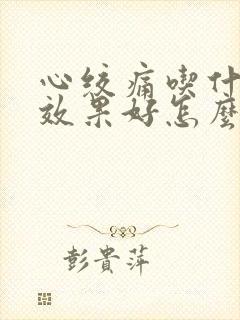 心绞痛喫什
效果好怎麽
彭貴萍